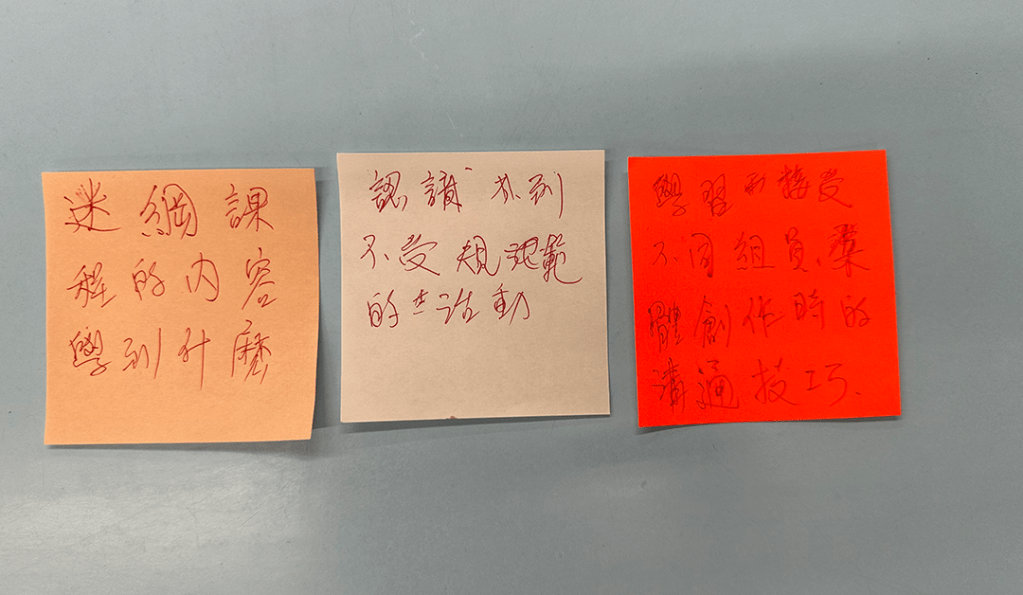 迷綱課
程的內容
學到什麽
認識
不受規範
的活動
學習和接受
不同組員、羣
體創作時的
溝通技巧.